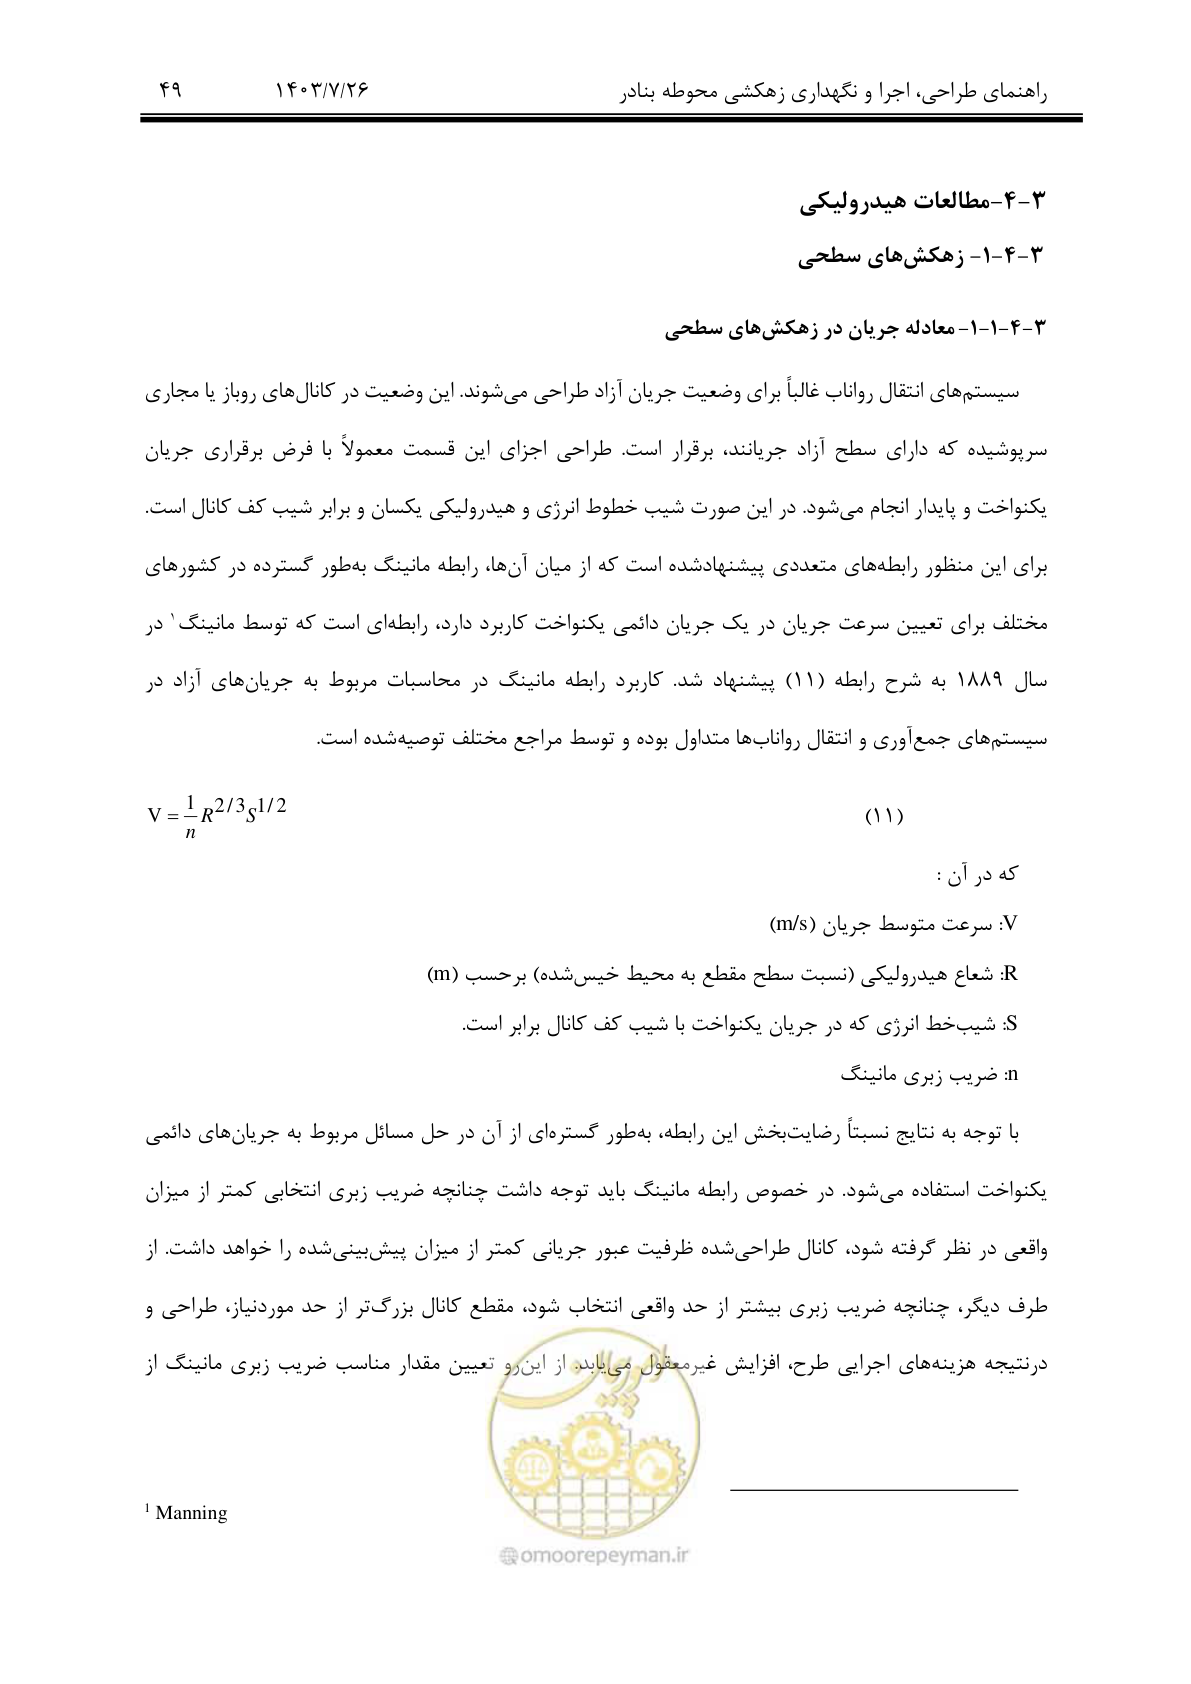 راهنمای طراحی، اجرا و نگهداری زهکشی محوطه بنادر ۱۴۰۳/۷/۲۶ ۴۹
۳-۴-مطالعات هیدرولیکی
۳-۴-۱- زهکش‌های سطحی
۳-۴-۱-۱- معادله جریان در زهکش‌های سطحی
سیستم‌های انتقال رواناب غالباً برای وضعیت جریان آزاد طراحی می‌شوند. این وضعیت در کانال‌های روباز یا مجاری
سرپوشیده که دارای سطح آزاد جریانند، برقرار است. طراحی اجزای این قسمت معمولاً با فرض برقراری جریان
یکنواخت و پایدار انجام می‌شود. در این صورت شیب خطوط انرژی و هیدرولیکی یکسان و برابر شیب کف کانال است.
برای این منظور رابطه‌های متعددی پیشنهادشده است که از میان آن‌ها، رابطه مانینگ به‌طور گسترده در کشورهای
مختلف برای تعیین سرعت جریان در یک جریان دائمی یکنواخت کاربرد دارد، رابطه‌ای است که توسط مانینگ۱ در
سال ۱۸۸۹ به شرح رابطه (۱۱) پیشنهاد شد. کاربرد رابطه مانینگ در محاسبات مربوط به جریان‌های آزاد در
سیستم‌های جمع‌آوری و انتقال رواناب‌ها متداول بوده و توسط مراجع مختلف توصیه‌شده است.
(۱۱) V = 1/n R^2/3 S^1/2
که در آن :
V: سرعت متوسط جریان (m/s)
R: شعاع هیدرولیکی (نسبت سطح مقطع به محیط خیس‌شده) برحسب (m)
S: شیب‌خط انرژی که در جریان یکنواخت با شیب کف کانال برابر است.
n: ضریب زبری مانینگ
با توجه به نتایج نسبتاً رضایت‌بخش این رابطه، به‌طور گستره‌ای از آن در حل مسائل مربوط به جریان‌های دائمی
یکنواخت استفاده می‌شود. در خصوص رابطه مانینگ باید توجه داشت چنانچه ضریب زبری انتخابی کمتر از میزان
واقعی در نظر گرفته شود، کانال طراحی‌شده ظرفیت عبور جریانی کمتر از میزان پیش‌بینی‌شده را خواهد داشت. از
طرف دیگر، چنانچه ضریب زبری بیشتر از حد واقعی انتخاب شود، مقطع کانال بزرگ‌تر از حد موردنیاز، طراحی و
درنتیجه هزینه‌های اجرایی طرح، افزایش غیرمعقول می‌یابد. از این‌رو تعیین مقدار مناسب ضریب زبری مانینگ از
امور پیمان
1 Manning
@omoorepeyman.ir